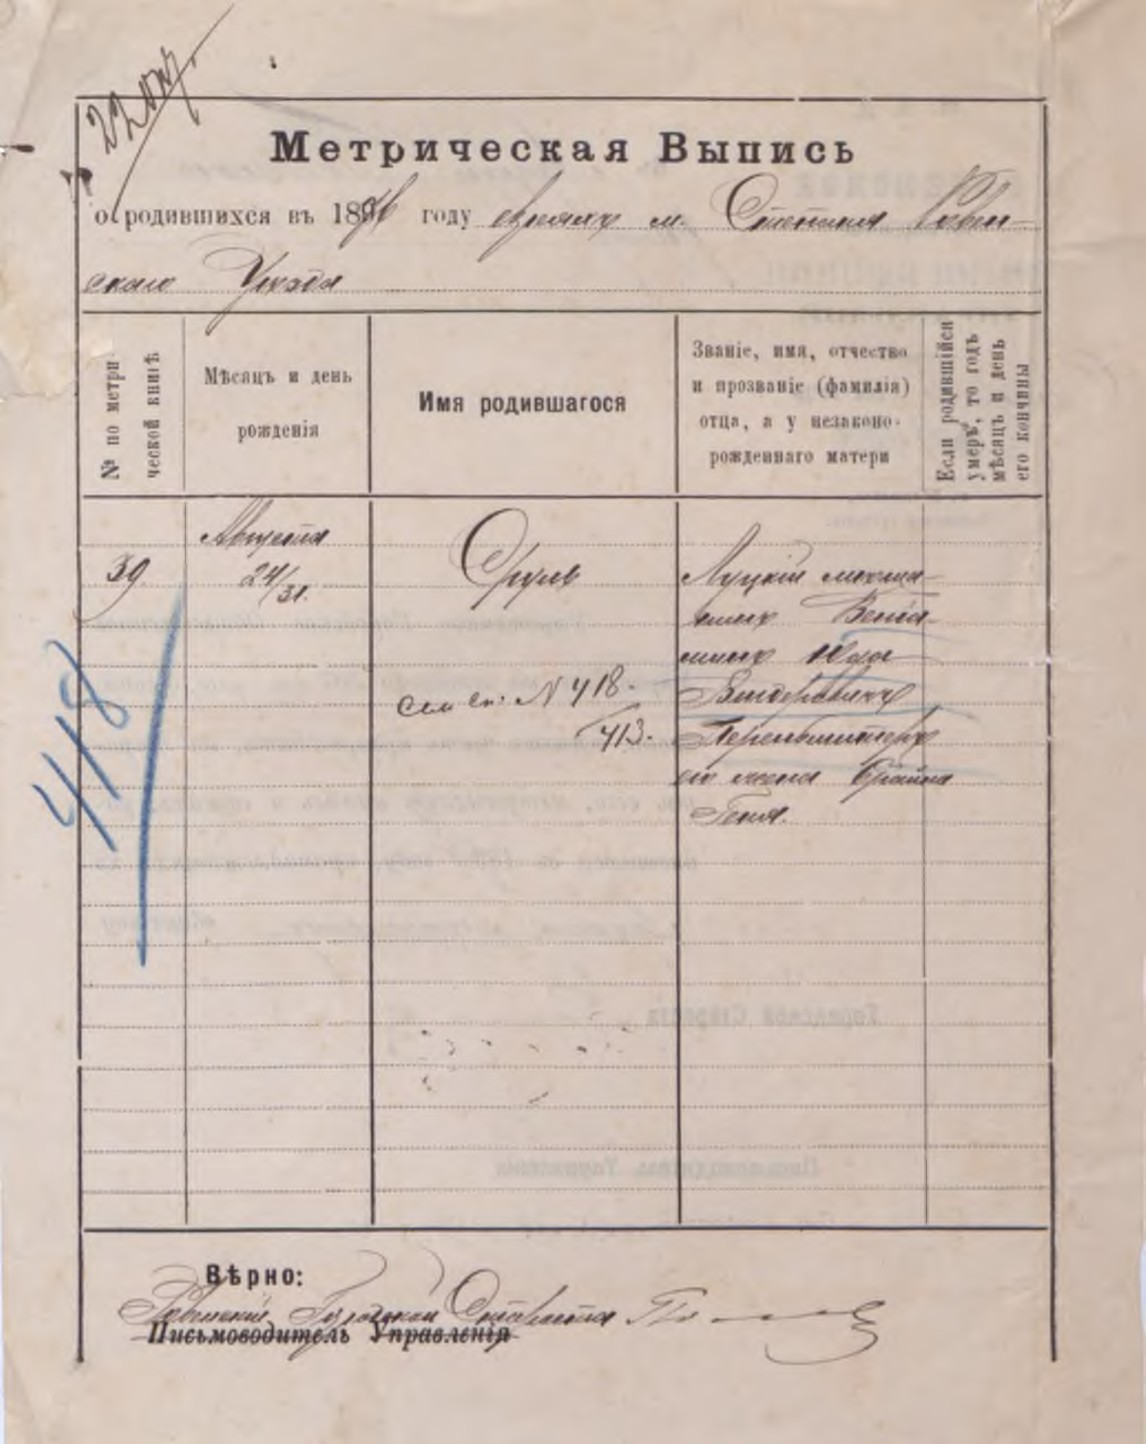 22
Метрическая Выпись
о родившихся въ 1896 году евреяхъ м. Степаня Ровен-
скаго Уѣзда
№ по метри-
ческой книгѣ
Мѣсяцъ и день
рожденія
Имя родившагося
Званіе, имя, отчество
и прозваніе (фамилія)
отца, а у незаконо-
рожденнаго матери
Если родившійся
умеръ, то годъ
мѣсяцъ и день
его кончины
Августа
39
24/31.
Сруль
Луцкій мѣща-
нинъ Веніа-
минъ
сем сп. № 418.
413.
его жена Брайна
Геня.
418
Вѣрно:
Ровенскій Городской Староста
Письмоводитель Управленія